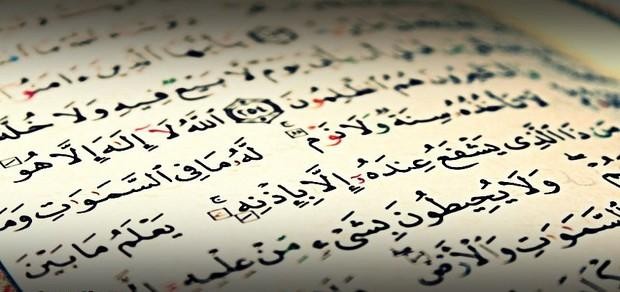 ٱلَّذِينَ ءَامَنُوٓا۟
يَوْمٌ لَّا بَيْعٌ فِيهِ وَلَا خُلَّةٌ
هُمُ ٱلظَّٰلِمُونَ ٢٥٤ ٱللَّهُ لَآ إِلَٰهَ إِلَّا هُوَ
لَا تَأْخُذُهُۥ سِنَةٌ وَلَا نَوْمٌ لَّهُۥ مَا فِى ٱلسَّمَٰوَٰتِ وَمَا
مَن ذَا ٱلَّذِى يَشْفَعُ عِندَهُۥٓ إِلَّا بِإِذْنِهِۦ يَعْلَمُ مَا بَيْنَ
وَلَا يُحِيطُونَ بِشَىْءٍ مِّنْ عِلْمِهِۦٓ
ٱلسَّمَٰوَٰتِ وَٱلْأَرْضَ